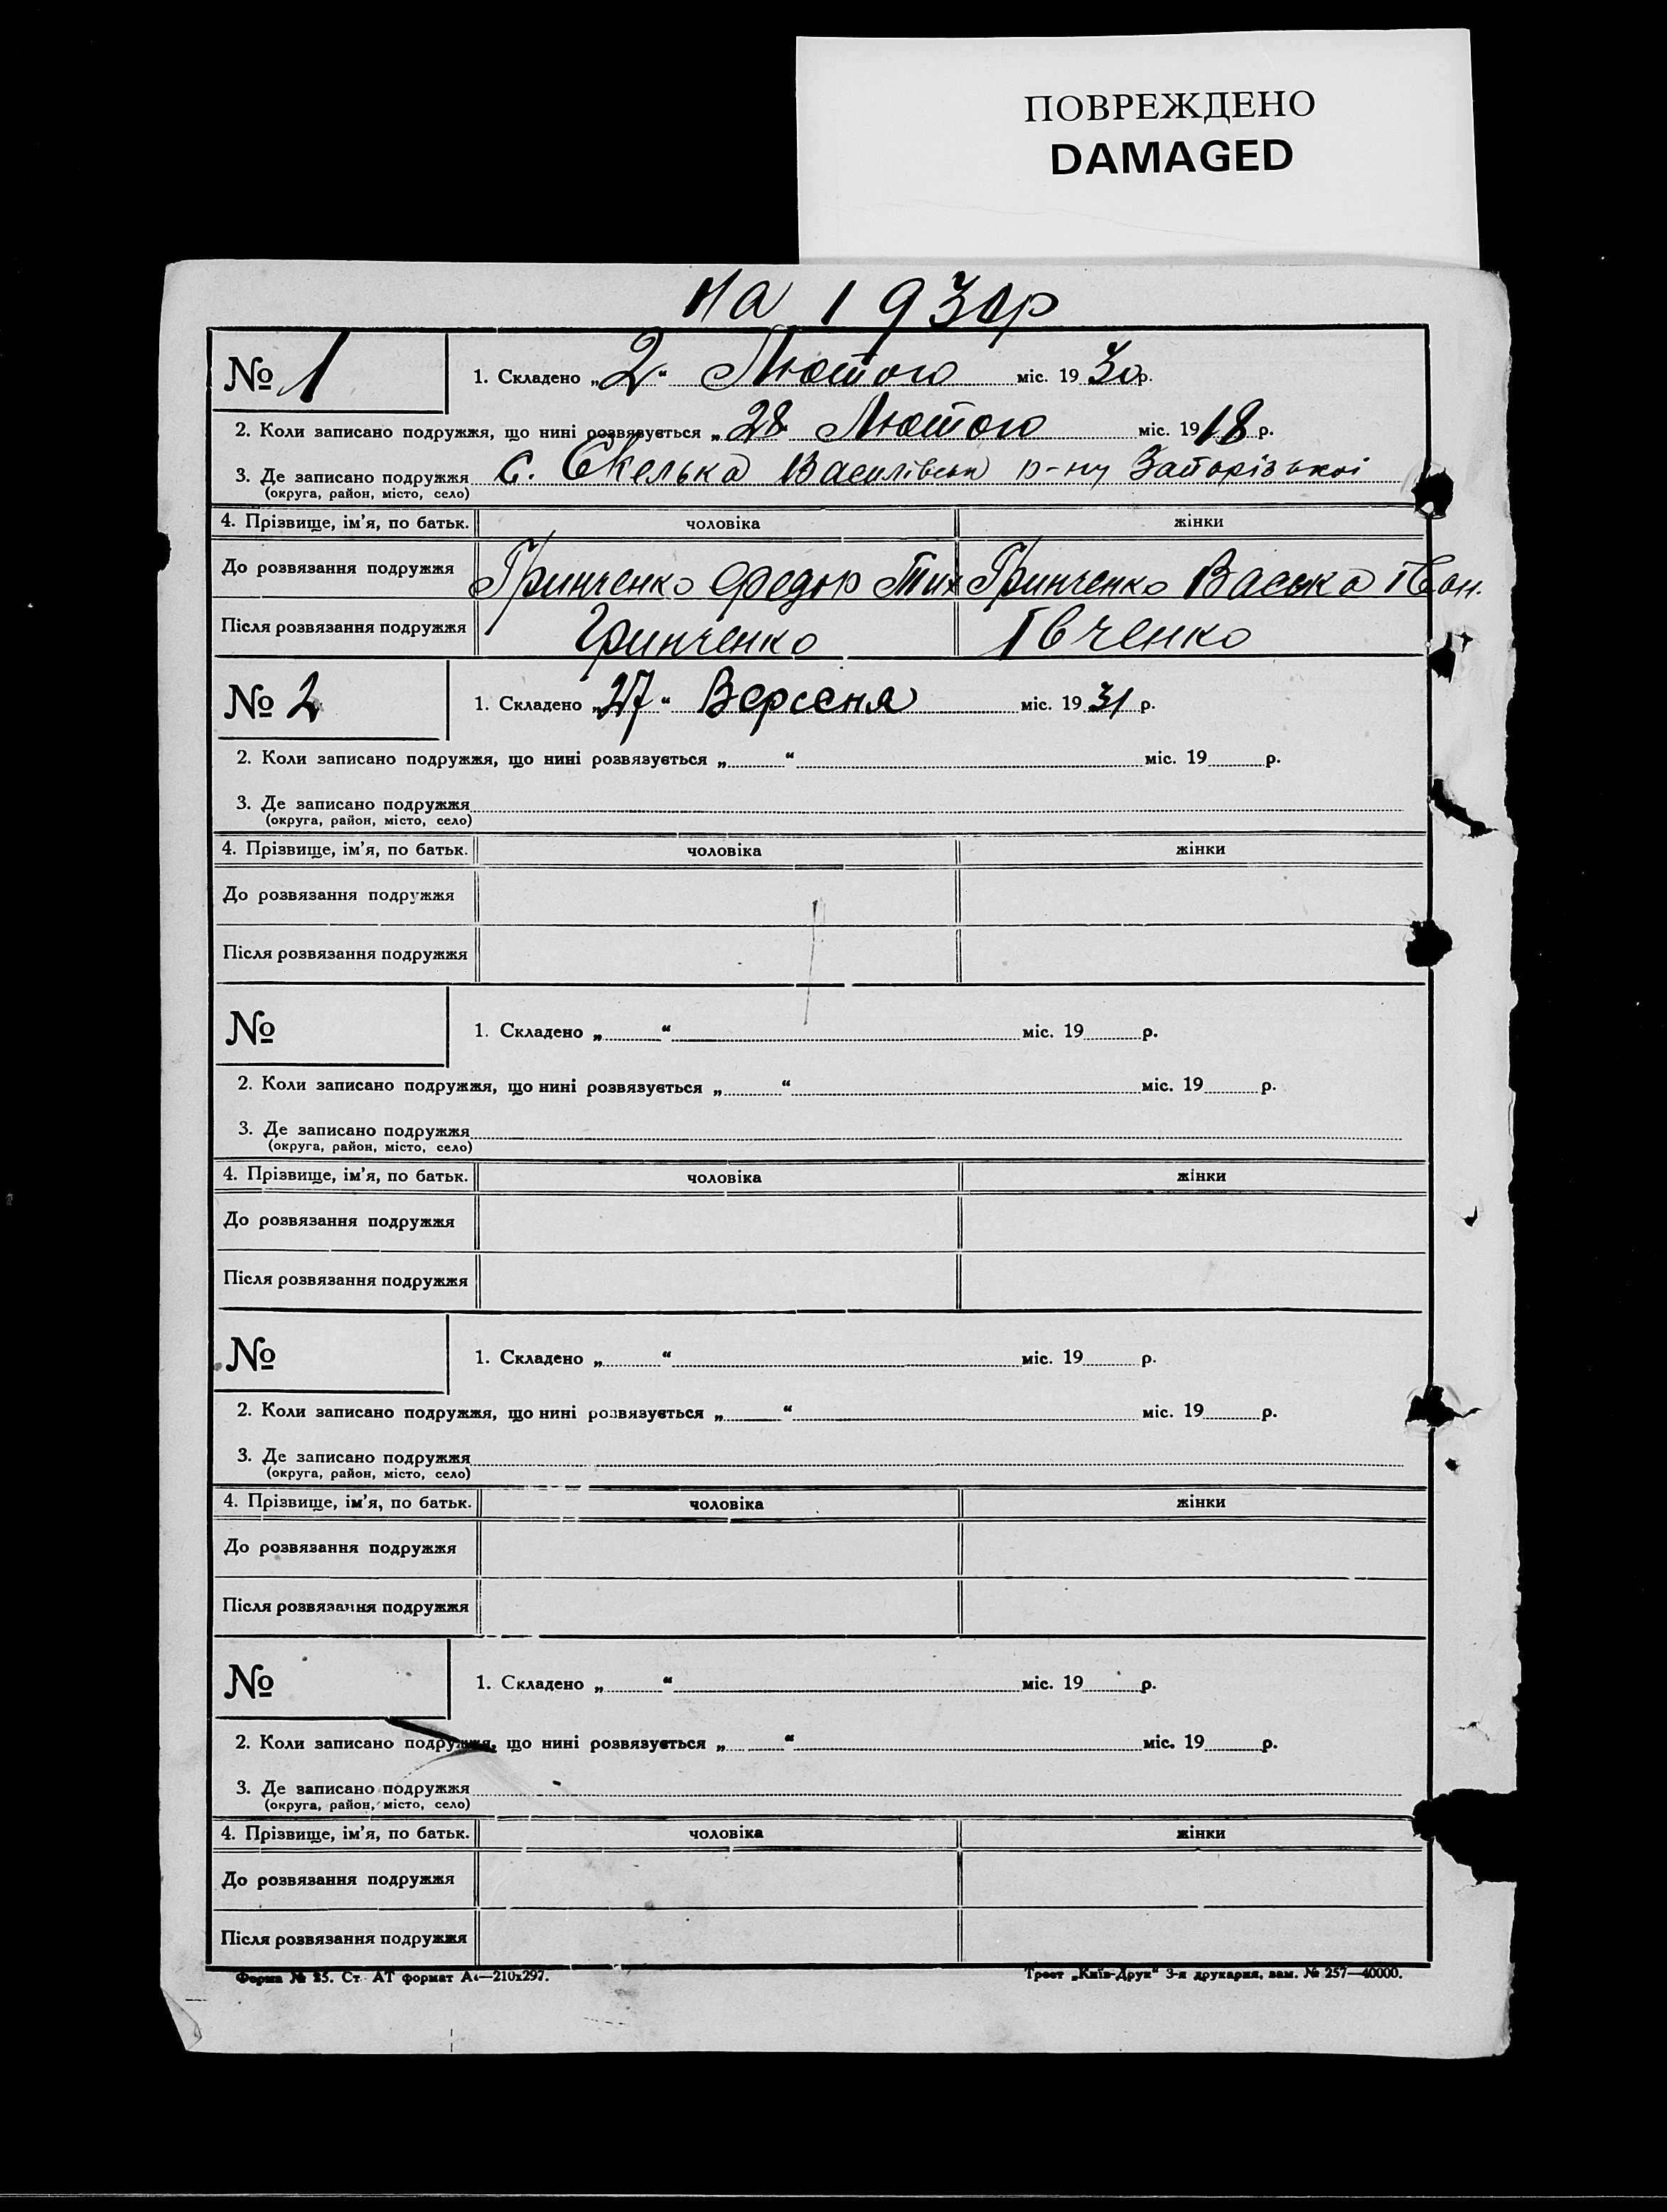 ПОВРЕЖДЕНО
DAMAGED
на 1930р
№ 1
1. Складено „2“ Лютого міс. 1930р.
2. Коли записано подружжя, що нині розвязується „28 Лютого міс. 1918 р.
3. Де записано подружжя с. Скелька Василівськ р-ну Запорізької
(округа, район, місто, село)
4. Прізвище, ім'я, по батьк. чоловіка жінки
До розвязання подружжя Гринченко Федор Тих Гринченко Васька Іван.
Після розвязання подружжя Гринченко Івченко
№ 2
1. Складено „27“ Версеня міс. 1931 р.
2. Коли записано подружжя, що нині розвязується „ “ міс. 19 р.
3. Де записано подружжя
(округа, район, місто, село)
4. Прізвище, ім'я, по батьк. чоловіка жінки
До розвязання подружжя
Після розвязання подружжя
№
1. Складено „ “ міс. 19 р.
2. Коли записано подружжя, що нині розвязується „ “ міс. 19 р.
3. Де записано подружжя
(округа, район, місто, село)
4. Прізвище, ім'я, по батьк. чоловіка жінки
До розвязання подружжя
Після розвязання подружжя
№
1. Складено „ “ міс. 19 р.
2. Коли записано подружжя, що нині розвязується „ “ міс. 19 р.
3. Де записано подружжя
(округа, район, місто, село)
4. Прізвище, ім'я, по батьк. чоловіка жінки
До розвязання подружжя
Після розвязання подружжя
№
1. Складено „ “ міс. 19 р.
2. Коли записано подружжя, що нині розвязується „ “ міс. 19 р.
3. Де записано подружжя
(округа, район, місто, село)
4. Прізвище, ім'я, по батьк. чоловіка жінки
До розвязання подружжя
Після розвязання подружжя
Форма № 25. Ст. АТ формат А4—210x297. Трест „Київ-Друк“ 3-я друкарня, зам. № 257—40000.